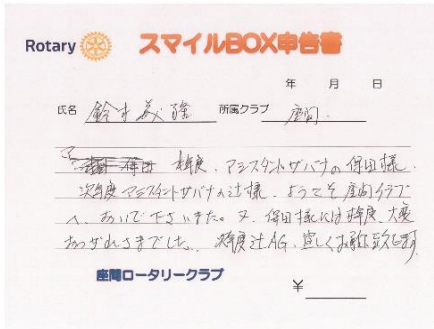 Rotary スマイルBOX申告書
年 月 日
氏名 鈴木義 所属クラブ 座間
保田 本年度、アシスタントガバナの保田様、
次年度アシスタントガバナの辻様、ようこそ座間クラブ
へ、おいで下さいました。又、保田様には本年度、大変
おつかれさまでした。次年度辻AG、宜しくお
座間ロータリークラブ
¥